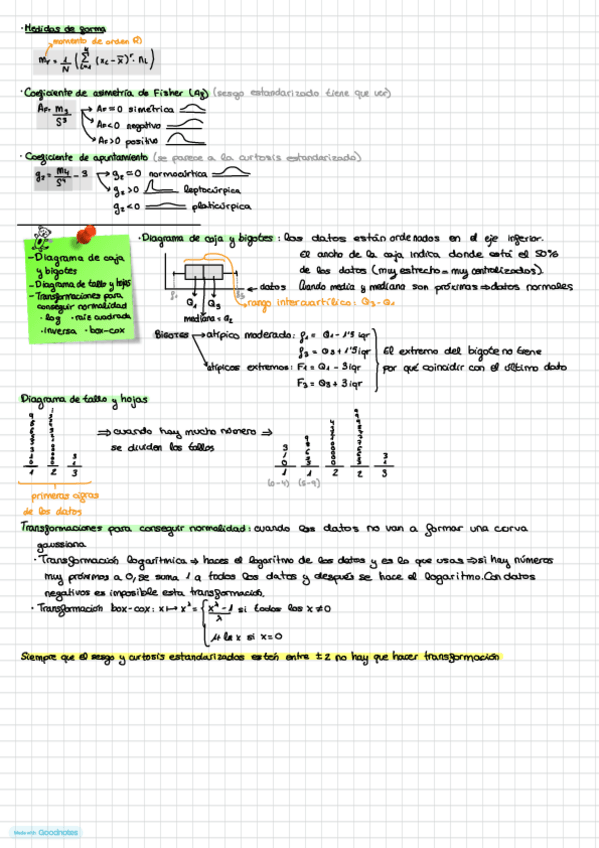 · Medidas de forma
momento de orden (r)
mᵣ = 1/N (Σ (xᵢ - x̄)ʳ · nᵢ)
· Coeficiente de asimetría de Fisher (Ag) (sesgo estandarizado tiene que ver)
AF = m₃/S³
AF=0 simétrica
AF<0 negativo
AF>0 positivo
· Coeficiente de apuntamiento (se parece a la curtosis estandarizado)
g₂ = m₄/S⁴ - 3
g₂=0 normocúrtica
g₂>0 leptocúrpica
g₂<0 platicúrpica
- Diagrama de caja y bigotes
- Diagrama de tallo y hojas
- Transformaciones para conseguir normalidad
· log · raíz cuadrada
· inversa · box-cox
· Diagrama de caja y bigotes: los datos están ordenados en el eje inferior.
El ancho de la caja indica donde está el 50%
de los datos (muy estrecho = muy centralizados).
← datos Cuando media y mediana son próximas ⇒ datos normales
f₁ Q₁ Q₃ f₃
rango intercuartílico: Q₃-Q₁
mediana = Q₂
Bigotes → atípico moderado: f₁ = Q₁ - 1'5 iqr
f₃ = Q₃ + 1'5 iqr
atípicos extremos: F₁ = Q₁ - 3 iqr
F₃ = Q₃ + 3 iqr
El extremo del bigote no tiene
por qué coincidir con el último dato
Diagrama de tallo y hojas
⇒ cuando hay mucho número ⇒
se dividen los tallos
1 2 3
1 1 2 2 3
(0-4) (5-9)
primeras cifras
de los datos
Transformaciones para conseguir normalidad: cuando los datos no van a formar una curva
gaussiana
· Transformación logarítmica ⇒ haces el logaritmo de los datos y es lo que usas ⇒ si hay números
muy próximos a 0, se suma 1 a todos los datos y después se hace el logaritmo. Con datos
negativos es imposible esta transformación.
· Transformación box-cox: x ↦ x^λ = { (x^λ - 1)/λ si todos los x≠0
ln x si x=0
Siempre que el sesgo y curtosis estandarizados estén entre ±2 no hay que hacer transformación
Made with Goodnotes